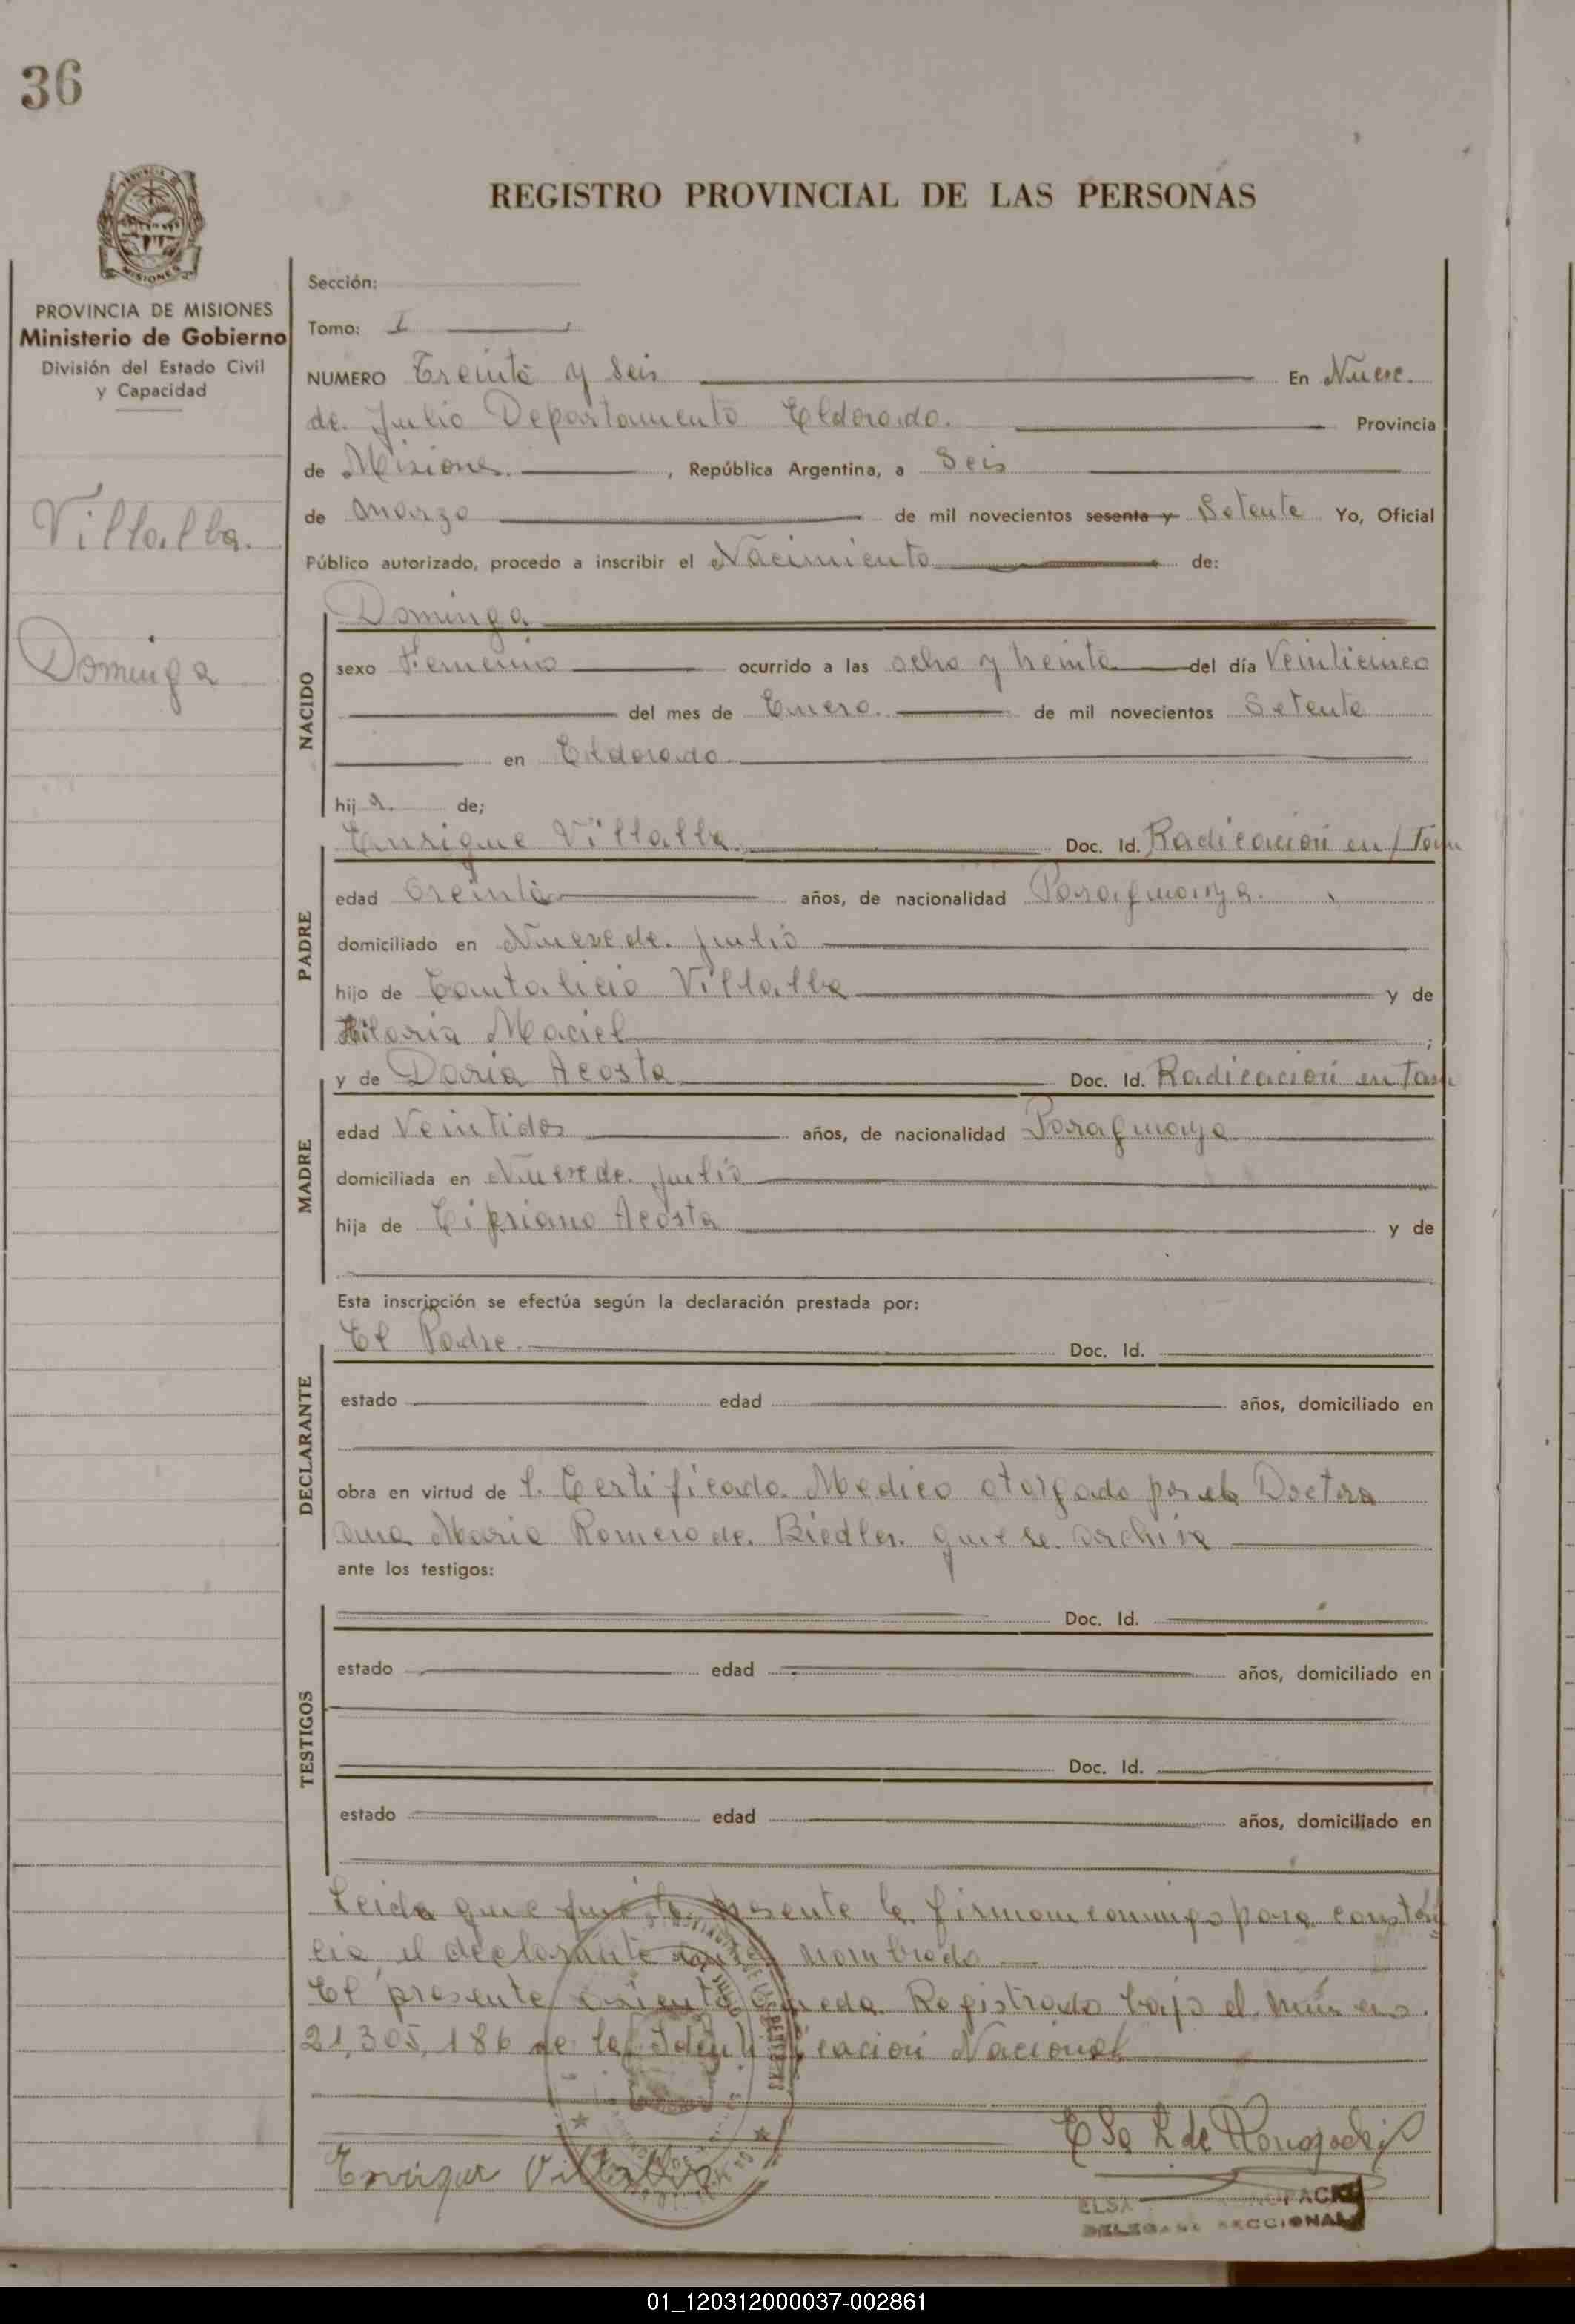 36
MISIONES
PROVINCIA DE MISIONES
Ministerio de Gobierno
División del Estado Civil
y Capacidad
Villalba.
Dominga
REGISTRO PROVINCIAL DE LAS PERSONAS
Sección:
Tomo: I
NUMERO Treinta y Seis En Nueve.
de. Julio Departamento Eldorado. Provincia
de Misiones. , República Argentina, a Seis
de Marzo de mil novecientos sesenta y Setenta Yo, Oficial
Público autorizado, procedo a inscribir el Nacimiento de:
NACIDO
Dominga
sexo Femenino ocurrido a las ocho y treinta del día Veinticinco
del mes de Enero. de mil novecientos Setenta
en Eldorado.
hij a. de;
PADRE
Enrique Villalba. Doc. Id. Radicación en
edad treinta años, de nacionalidad Paraguaya.
domiciliado en Nueve de. Julio
hijo de Cantalicio Villalba y de
Hilaria Maciel ;
MADRE
y de Daria Acosta Doc. Id. Radicación en
edad Veintidos años, de nacionalidad Paraguaya
domiciliada en Nueve de. Julio
hija de Cipriano Acosta y de
Esta inscripción se efectúa según la declaración prestada por:
DECLARANTE
El Padre. Doc. Id.
estado edad años, domiciliado en
obra en virtud de l. Certificado Medico otorgado por la Doctora
Ana Maria Romero de. Biedler. que se. archiva
ante los testigos:
TESTIGOS
Doc. Id.
estado edad años, domiciliado en
Doc. Id.
estado edad años, domiciliado en
Leida que fue la presente la firman conmigo para constan
cia el declarante nombrado
El presente asiento queda Registrado bajo el
21,305,186 de la Identificación Nacional
Enrique Villalba
ELSA
DELEGADA SECCIONAL
01_120312000037-002861